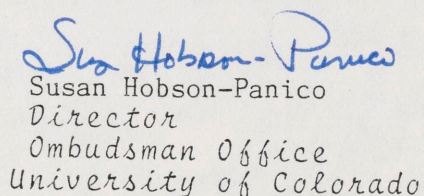 Sus Hobson-Panico
Susan Hobson-Panico
Director
Ombudsman Office
University of Colorado